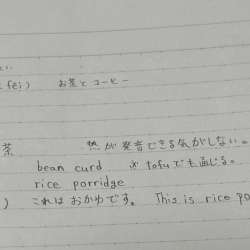 fēi) お茶とコーヒー
茶 熱が発音できる気がしない。
bean curd ※ tofuでも通じる。
rice porridge
) これはおかゆです。 This is rice po